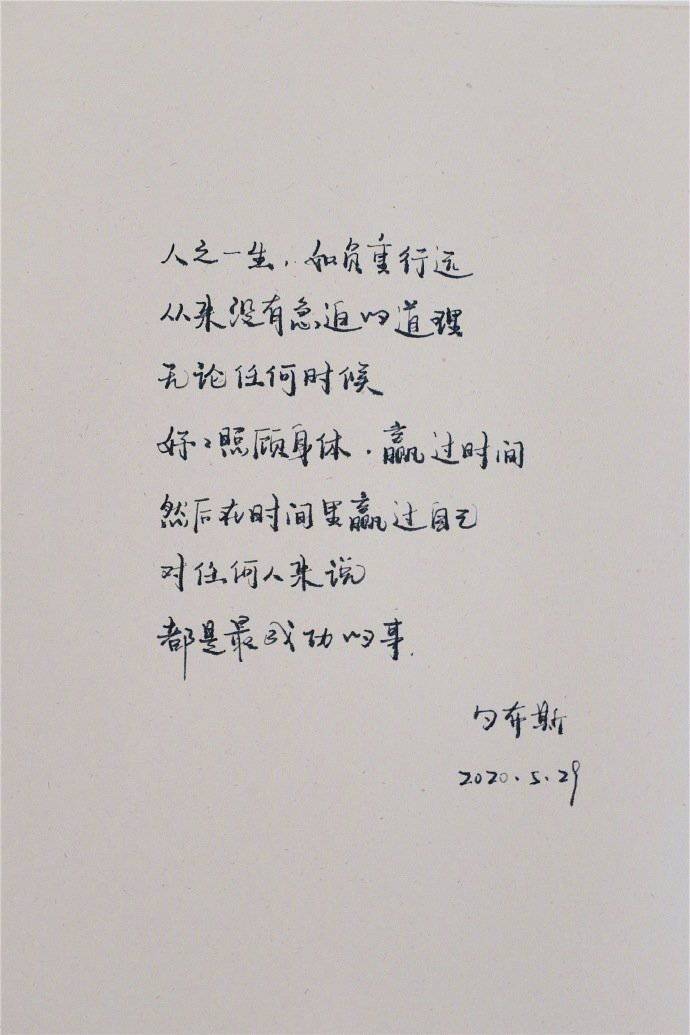 人之一生，如负重行远
从来没有急迫的道理
无论任何时候
好好照顾身体，赢过时间
然后在时间里赢过自己
对任何人来说
都是最成功的事.
布斯
2020.5.29